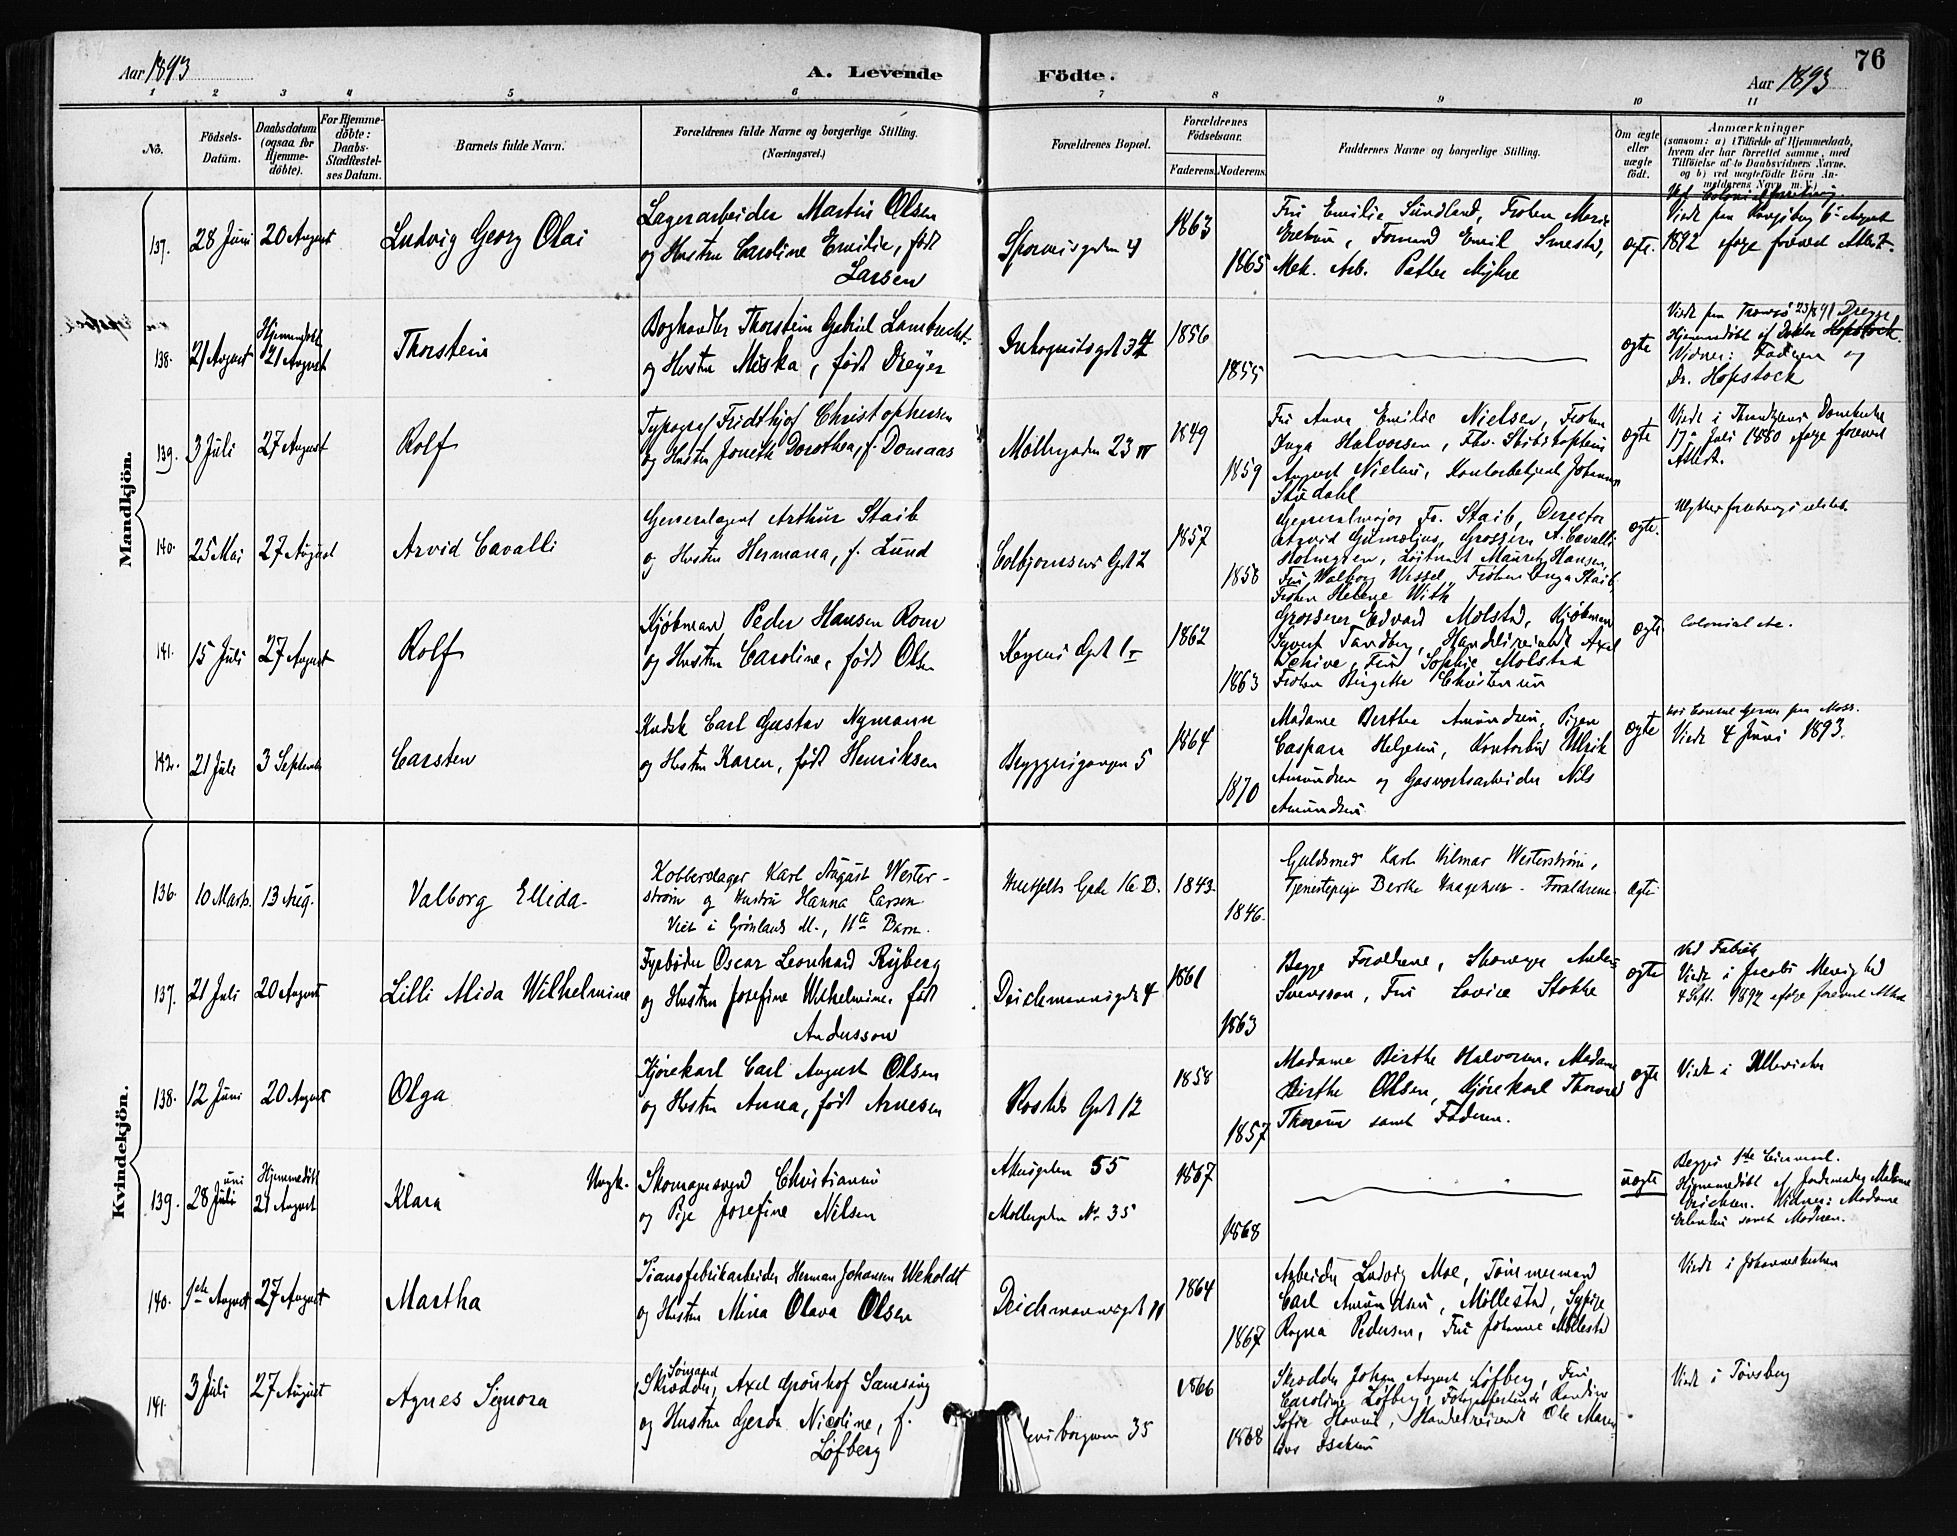 76
Aar 1893
A. Levende
Födte.
Aar 1893
1 2 3 4 5 6 7 8 9 10 11
No.
Födsels-Datum.
Daabsdatum (ogsaa for Hjemme-döbte).
For Hjemme-döbte: Daabs-Stadfæstel-ses Datum.
Barnets fulde Navn.
Forældrenes fulde Navne og borgerlige Stilling.
(Næringsvei.)
Forældrenes Bopæl.
Forældrenes Födselsaar.
Faderens. Moderens.
Faddernes Navne og borgerlige Stilling.
Om ægte eller uægte födt.
Anmærkninger
(saasom: a) i Tilfælde af Hjemmedaab,
hvem der har forrettet samme, med
Tilföielse af to Daabsvidners Navne.
og b) ved uægtefödte Börn An-
melderens Navn m. V.)
Mandkjön.
137. 28 Juni 20 August
Ludvig Georg Olai
Lagerarbeider Martin Olsen
og Hustru Caroline Emilie, født
Larsen
1863
1865
Fru Emilie Sundland, Frøken Marie
Emil
Mek. Arb. Petter
ægte.
6 August
1892 ifølge forevist Attest.
138. 21 August Hjemmedøbt 21 August
Thorstein
Boghandler Thorstein Gabriel Lambrecht
og Hustru Miska, født Dreyer
1856
1855
ægte
Viet paa Tromsø
Hjemmedøbt af Doktor Hopstock
Vidner: Faderen og
Dr. Hopstock
139. 3 Juli 27 August
Rolf
Typograf Fridthjof Christophersen
og Hustru Dorothea, f. Domaas
Møllergaden 23 IV
1849
1859
Fru Anna Emilie Nielsen, Frøken
Inga Halvorsen,
August Nielsen, Kontorbetjent Johannes
Stördahl
ægte
Viet i Domkirke
17 Juli 1880 ifølge forevist
Attest.
140. 25 Mai 27 August
Arvid Cavalli
Generalagent Arthur Staib
og Hustru Hermana, f. Lund
Colbjørnsens Gd 2
1857
1858
Generalmajor Fr. Staib, Director
Arvid Gumælius, Grosserer A. Cavalli
Holmgren, Løitnant Mauritz Hansen,
Fru Valborg Wessel, Frøken Inga Staib,
Frøken Helene With
ægte.
141. 15 Juli 27 August
Rolf
Kjøbmand Peder Hansen Rom
og Hustru Caroline, født Olsen
Keysers Gd 1
1862
1863
Grosserer Edvard Molstad, Kjøbmand
Syvert Sandberg, Handelsreisende Axel
Schive, Fru Sophie Molstad
Frøken Birgitte Christensen
ægte
Colonial etc.
142. 21 Juli 3 September
Carsten
Kudsk Carl Gustav Nymann
og Hustru Karen, født Henriksen
Bryggerigangen 5
1864
1870
Madame Berthe Amundsen, Pigen
Caspara Helgesen, Kontorbud Ulrik
Amundsen og Gasverksarbeider Nils
Amundsen
ægte
Viet 4 Juni 1893.
Kvindekjön.
136. 10 Marts. 13 Aug.
Valborg Ellida.
Kobberslager Karl August Wester-
strøm og Hustru Hanna Larsen.
Viet i Grønlands M., 11te Barn.
Gade 16 B.
1843.
1846.
Guldsmed Karl Hilmar Westerstrøm,
Tjenestepige Berthe . Forældrene.
ægte
137. 21 Juli 20 August
Lilli Alida Wilhelmine
Fyrbøder Oscar Leonhard Ryberg
og Hustru Josefine Wilhelmine, født
Andersson
Deichmannsgd 4
1861
1863
Begge Forældrene,
Svensson, Fru Lovise Stokke
ægte
ved Fabrik
Viet i Jacobs Menighed
4 Sept. 1892 ifølge forevist Attest
138. 12 Juni 20 August
Olga
Kjørekarl Carl August Olsen
og Hustru Anna, født Arnesen
Rosteds Gd 12
1858
1857
Madame Birthe Halvorsen, Madame
Birthe Olsen, Kjørekarl
samt Faderen.
ægte
Viet i
139. 28 Juli Hjemmedøbt 21 August
Klara
Ungk. Skomagersvend Christiansen
og Pige Josefine Nilsen
Akersgaden 55
Møllergaden No. 35
1867
1868
uægte
Begges 1ste
Hjemmedøbt af Jordemoder Madame
Erichsen. Vidner: Madame
samt Moderen.
140. 1ste August 27 August
Martha
Pianofabrikarbeider Herman Johansen Weholdt
og Hustru Mina Olava Olsen
Deichmannsgd 11
1864
1867
Arbeider Ludvig Moe, Tømmermand
Carl Amundsen, Møllestad, Sypige
Ragna Pedersen, Fru Johanne Møllestad
Viet i Johanneskirken
141. 3 Juli 27 August
Agnes Signora
Skrædder, Axel Samsing
og Hustru Gerda Nicoline, f.
Løfberg
35
1866
1868
Skrædder Johan August Løfberg, Fru
Caroline Løfberg,
Handelsreisende Ole
Viet i Tønsberg